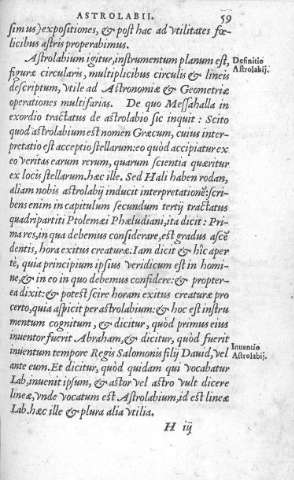 ASTROLABII. 59
simus) expositiones, & post hac ad vtilitates fœ-
licibus astris properabimus.
Astrolabium igitur, instrumentum planum est,
Definitio
Astrolabij.
figuræ circularis, multiplicibus circulis & lineis
descriptum, vtile ad Astronomiæ & Geometriæ
operationes multifarias. De quo Messahalla in
exordio tractatus de astrolabio sic inquit: Scito
quòd astrolabium est nomen Græcum, cuius inter-
pretatio est acceptio stellarum: eo quòd accipiatur ex
eo veritas earum rerum, quarum scientia quæritur
ex locis stellarum. hæc ille. Sed Hali haben rodan,
aliam nobis astrolabij inducit interpretationẽ: scri-
bens enim in capitulum secundum tertij tractatus
quadripartiti Ptolemæi Phæludiani, ita dicit: Pri-
ma res, in qua debemus considerare, est gradus ascẽ
dentis, hora exitus creaturæ: Iam dicit & hîc aper
tè, quia principium ipsius veridicum est in homi-
ne, & in eo in quo debemus considere: & propter-
ea dixit: & potest scire horam exitus creaturæ pro
certo, quia aspicit per astrolabium: & hoc est instru
mentum cognitum, & dicitur, quòd primus eius
inuentor fuerit Abraham, & dicitur, quòd fuerit
inuentum tempore Regis Salomonis filij Dauid, vel
Inuentio
Astrolabij.
ante eum. Et dicitur, quòd quidam qui vocabatur
Lab, inuenit ipsum, & astor vel astro vult dicere
lineæ, vnde vocatum est Astrolabium, id est lineæ
Lab. hæc ille & plura alia vtilia.
H iij